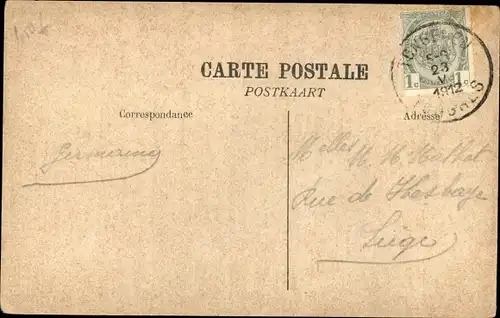 CARTE POSTALE
POSTKAART
Correspondance
Adresse
1c 1c
23
V
1912
TONGRES
Germaine
Melles M. M. Mathot
Rue de Hesbaye
Liége